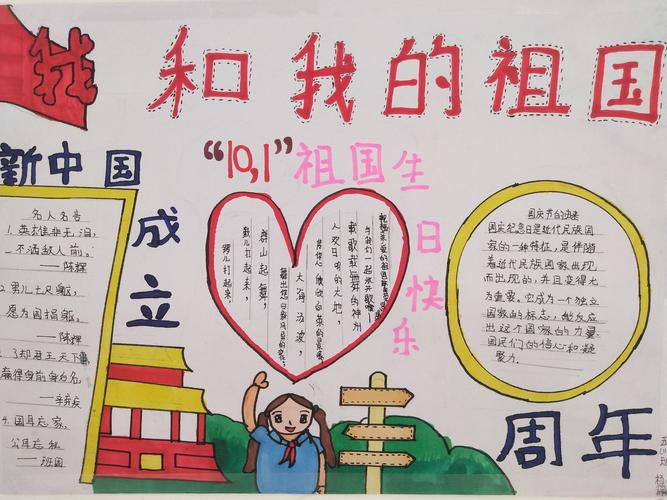 我和我的祖国
新中国
成立
周年
“10,1”祖国生
日快乐
名人名言
1. 英雄非无泪,
不洒敌人前。
——陈辉
2. 男儿七尺躯,
愿为国捐躯。
——陈辉
3. 了却君王天下事
赢得生前身后名,
——辛弃疾
4. 国耳忘家,
公耳忘私
——班固
载歌载舞的神州
人欢马鸣的大地,
大海扬波,
群山起舞,
鼓儿打起来,
锣儿打起来,
国庆节的由来
国庆纪念日是近代民族国
家的一种特征,是伴随
着近代民族国家出现
而出现的,并且变得尤
为重要。它成为一个独立
国家的标志,
出这个国家的力量
国民们的信心和凝
聚力.